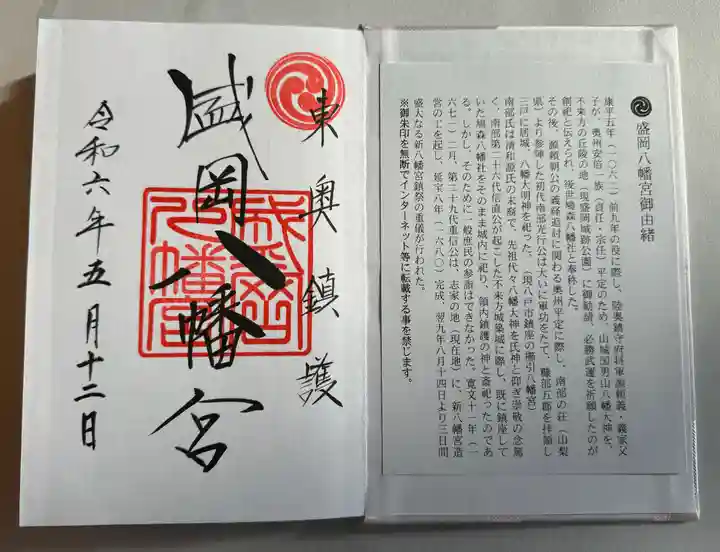 盛岡八幡宮御由緒
康平五年(一〇六二)前九年の役に際し、陸奥鎮守府将軍源頼義・義家父
子が、奥州安倍一族(貞任・宗任)平定のため、山城国男山八幡大神を、
不来方の丘陵の地(現盛岡城跡公園)に御勧請、必勝武運を祈願したのが
創祀と伝えられ、後世鳩森八幡社と奉称した。
その後、源頼朝公の義経追討に関わる奥州平定に際し、南部の荘(山梨
県)より参陣した初代南部光行公は大いに軍功をたて、糠部五郡を拝領し
三戸に居城、八幡大明神を祀った。(現八戸市鎮座の櫛引八幡宮)
南部氏は清和源氏の末裔で、先祖代々八幡大神を氏神と仰ぎ崇敬の念篤
く、南部第二十六代信直公が起こした不来方城築城に際し、既に鎮座して
いた鳩森八幡社をそのまま城内に祀り、領内鎮護の神と斎祀ったのであ
る。しかし、そのために一般庶民の参詣はできなかった。寛文十一年(一
六七一)二月、第二十九代重信公は、志家の地(現在地)に、新八幡宮造
営の工を起し、延宝八年(一六八〇)完成、翌九年八月十四日より三日間
盛大なる新八幡宮鎮祭の重儀が行われた。
※御朱印を無断でインターネット等に転載する事を禁じます。
東奥鎮護
盛岡八幡宮
令和六年五月十二日